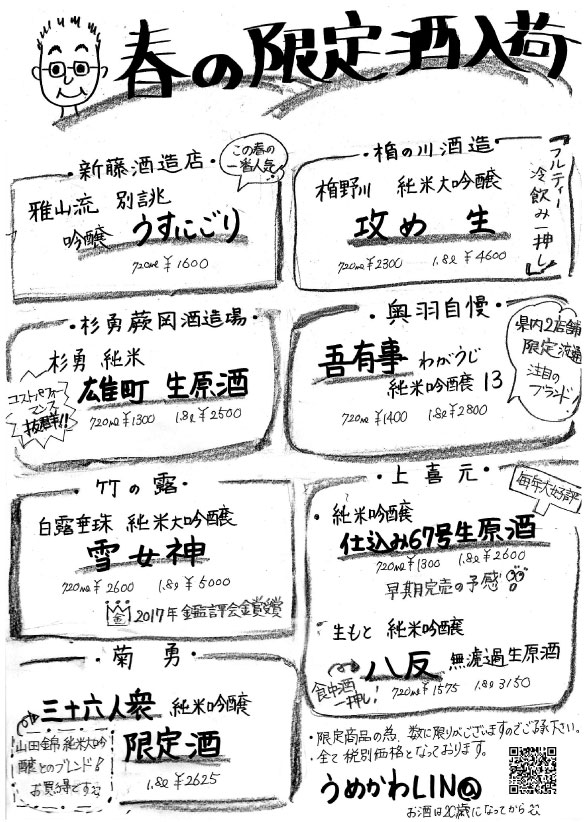 春の限定酒入荷
・新藤酒造店・
この春の
一番人気
雅山流 別誂
吟醸 うすにごり
720ml ¥1600
・楯の川酒造・
楯野川 純米大吟醸
攻め 生
720ml ¥2300 1.8ℓ ¥4600
フルーティー
冷飲み一押し
・杉勇蕨岡酒造場・
杉勇 純米
雄町 生原酒
720ml ¥1300 1.8ℓ ¥2500
コストパフォー
マンス
抜群!!
・奥羽自慢・
吾有事 わがうじ
純米吟醸 13
720ml ¥1400 1.8ℓ ¥2800
県内2店舗
限定流通
注目の
ブランド!
・竹の露・
白露垂珠 純米大吟醸
雪女神
720ml ¥2600 1.8ℓ ¥5000
金 2017年 金鑑評会金賞受賞
・上喜元・
毎年大好評
・純米吟醸
仕込み67号生原酒
720ml ¥1300 1.8ℓ ¥2600
早期完売の予感
・生もと 純米吟醸
八反 無濾過生原酒
720ml ¥1575 1.8ℓ 3150
食中酒
一押し!
・菊勇・
三十六人衆 純米吟醸
限定酒
1.8ℓ ¥2625
山田錦純米大吟
醸とのブレンド!
お買得です
・限定商品の為、数に限りがございますのでご了承下さい。
全て税別価格となっております。
うめかわLIN@
お酒は20歳になってから